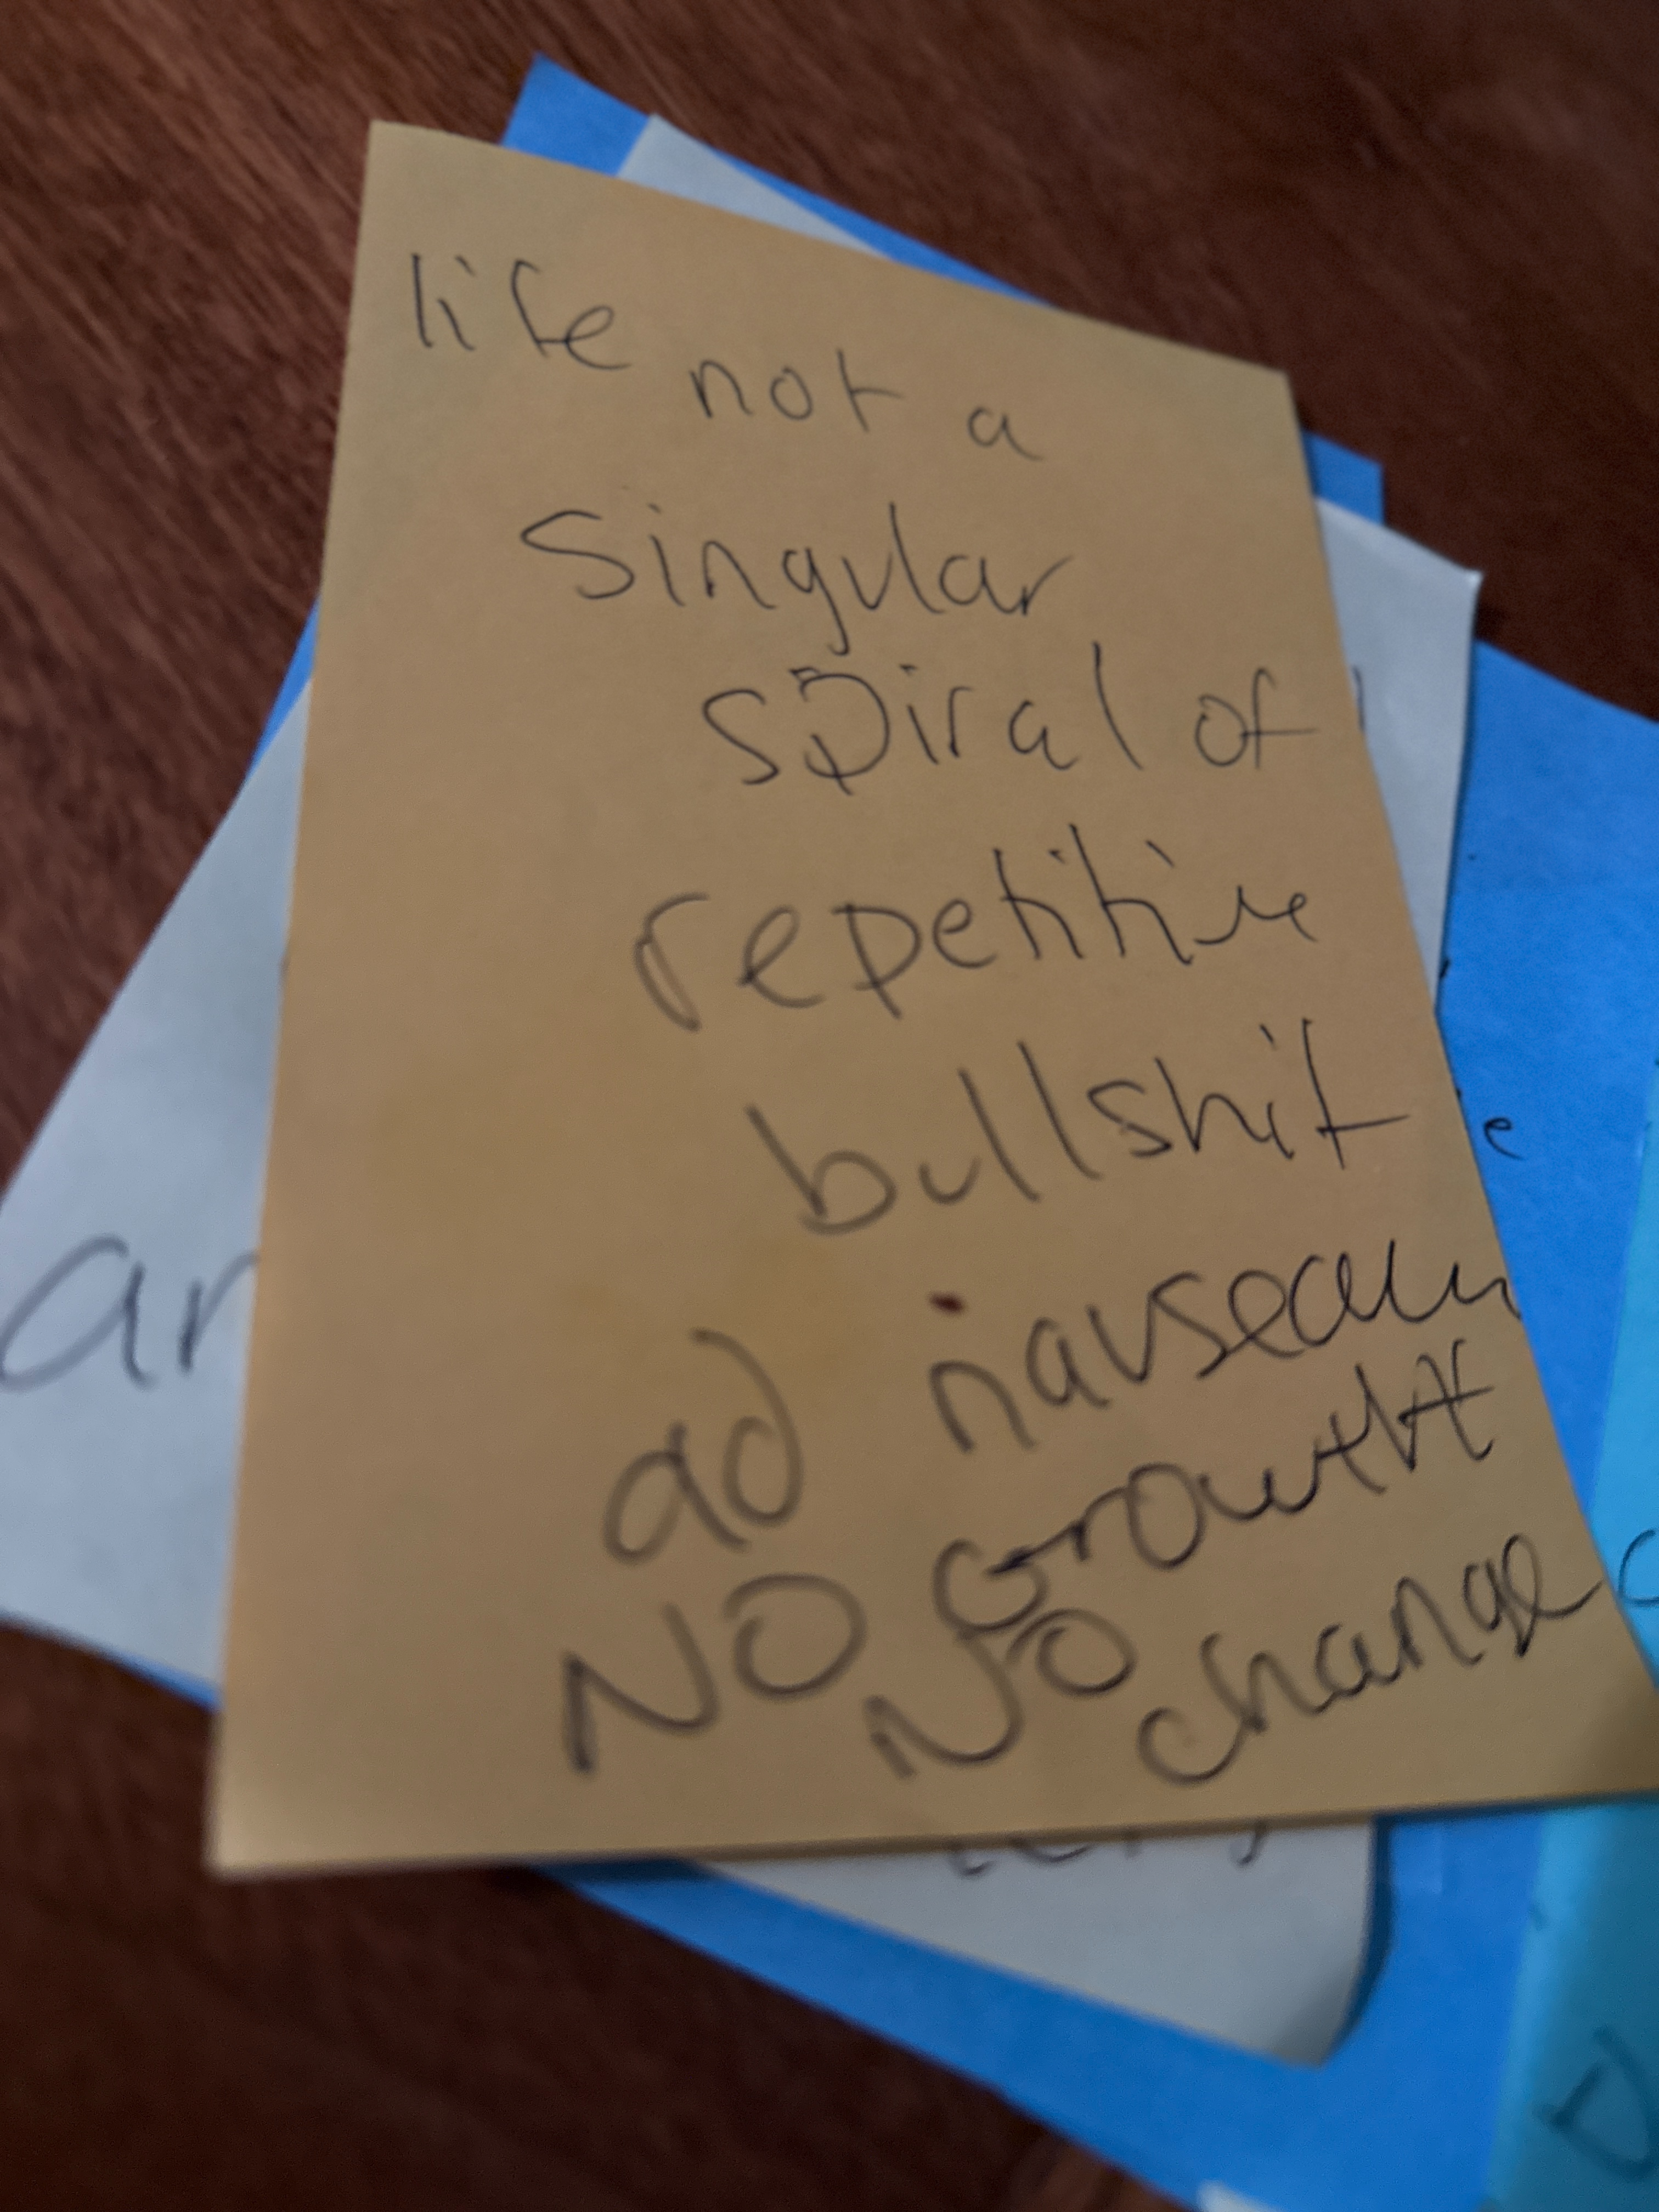 life not a
singular
spiral of
repetitive
bullshit
ad nauseam
NO GrowtH
NO change
ar
e